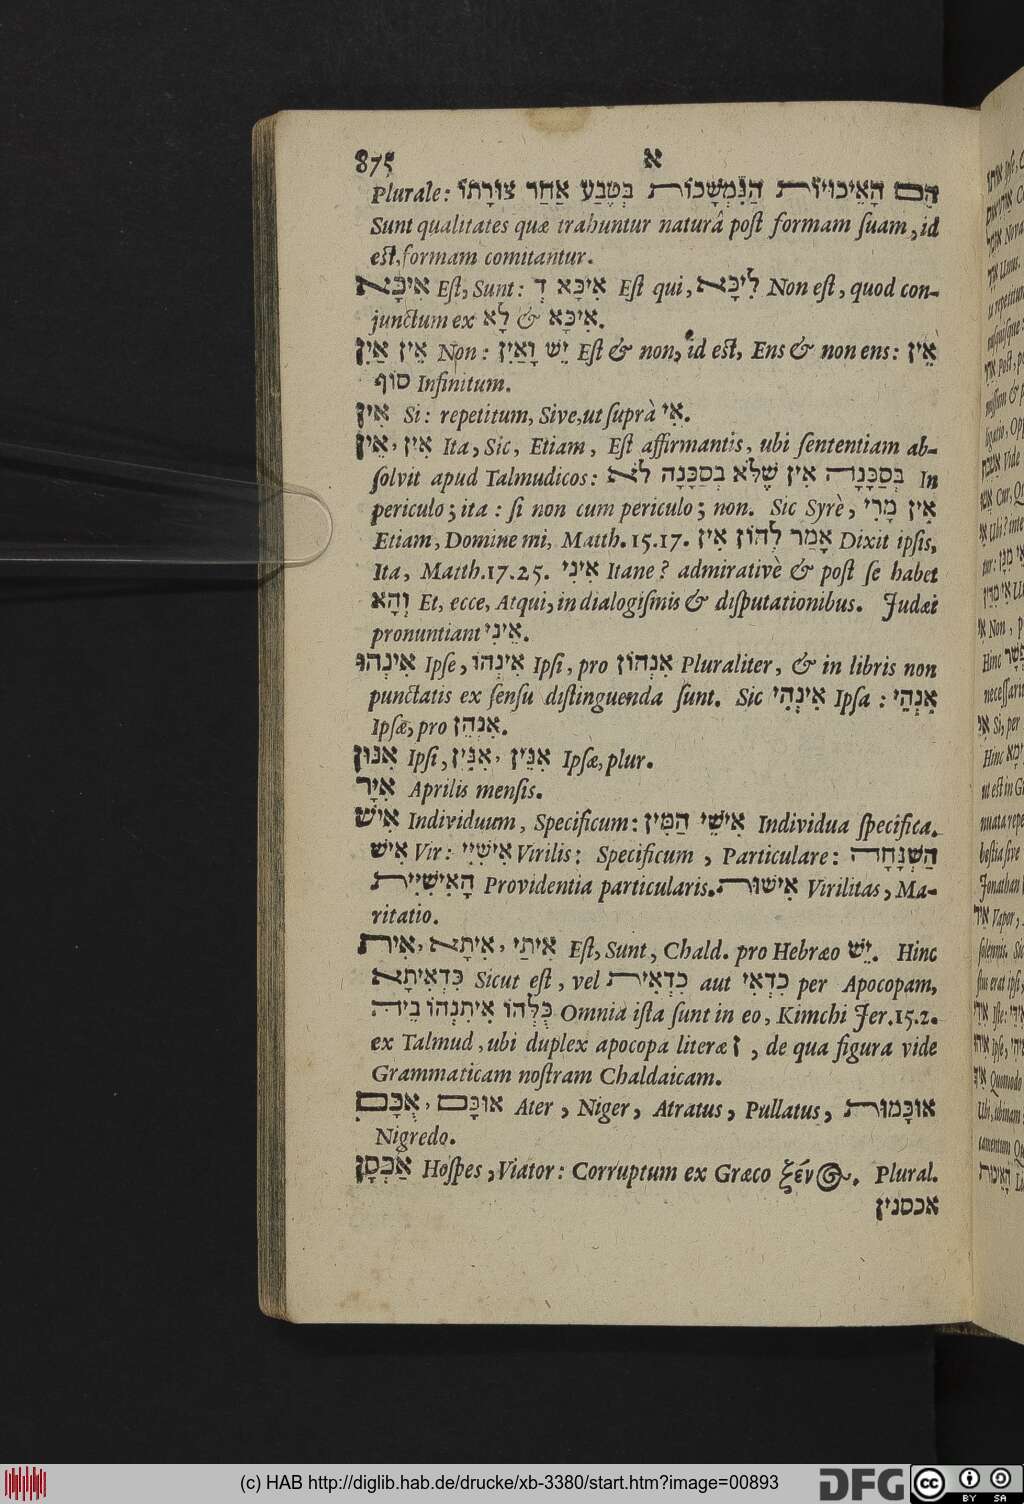 875 א
Plurale: הֵם הָאֵיכוּיוֹת הַנִּמְשָׁכוֹת בְּטֶבַע אַחַר צוּרָתוֹ
Sunt qualitates quæ trahuntur naturâ poſt formam ſuam, id
eſt, formam comitantur.
אִיכָּא Eſt, Sunt: אִיכָּא דְ Eſt qui, לִיכָּא Non eſt, quod con-
junctum ex לָא & אִיכָּא.
אֵין אַיִן Non: יֵשׁ וָאַיִן Eſt & non, id eſt, Ens & non ens: אֵין
סוֹף Infinitum.
אִין Si: repetitum, Sive, ut ſuprà אִי.
אִין, אֵין Ita, Sic, Etiam, Eſt affirmantis, ubi ſententiam ab-
ſolvit apud Talmudicos: בְּסַכָּנָה אִין שֶׁלֹּא בְסַכָּנָה לֹא In
periculo; ita: ſi non cum periculo; non. Sic Syrè, אִין מָרִי
Etiam, Domine mi, Matth. 15.17. אָמַר לְהוֹן אִין Dixit ipſis,
Ita, Matth. 17.25. אִינִי Itane? admirativè & poſt ſe habet
וְהָא Et, ecce, Atqui, in dialogiſmis & diſputationibus. Judæi
pronuntiant אֵינִי.
אִינְהוּ Ipſe, אִינְהוֹ Ipſi, pro אִנְהוֹן Pluraliter, & in libris non
punctatis ex ſenſu diſtinguenda ſunt. Sic אִינְהִי Ipſa: אִנְהֵי
Ipſæ, pro אִנְהֵן.
אִנּוּן Ipſi, אִנֵּין, אִנִּין Ipſæ, plur.
אִיָר Aprilis menſis.
אִישׁ Individuum, Specificum: אִישֵׁי הַמִּין Individua ſpecifica.
אִישׁ Vir: אִישִׁיִי Virilis: Specificum, Particulare: הַשְׁגָּחָה
הָאִישִׁיִית Providentia particularis. אִישׁוּת Virilitas, Ma-
ritatio.
אִיתַי, אִיתָא, אִית Eſt, Sunt, Chald. pro Hebræo יֵשׁ. Hinc
כִּדְאִיתָא Sicut eſt, vel כִדְאִית aut כִדְאִי per Apocopam,
כֻּלְּהוֹ אִיתִנְהוֹ בֵיה Omnia iſta ſunt in eo, Kimchi Jer. 15.2.
ex Talmud, ubi duplex apocopa literæ ן, de qua figura vide
Grammaticam noſtram Chaldaicam.
אוּכָּם, אֻכָּם Ater, Niger, Atratus, Pullatus, אוּכָּמוּת
Nigredo.
אַכְסָן Hoſpes, Viator: Corruptum ex Græco ξένος. Plural.
אכסנין
(c) HAB http://diglib.hab.de/drucke/xb-3380/start.htm?image=00893
DFG
cc BY SA